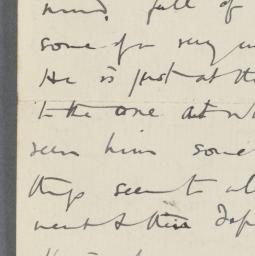 mind, full of
some for very
He is just at the
to the one at
seen him some
things seem to
went to this